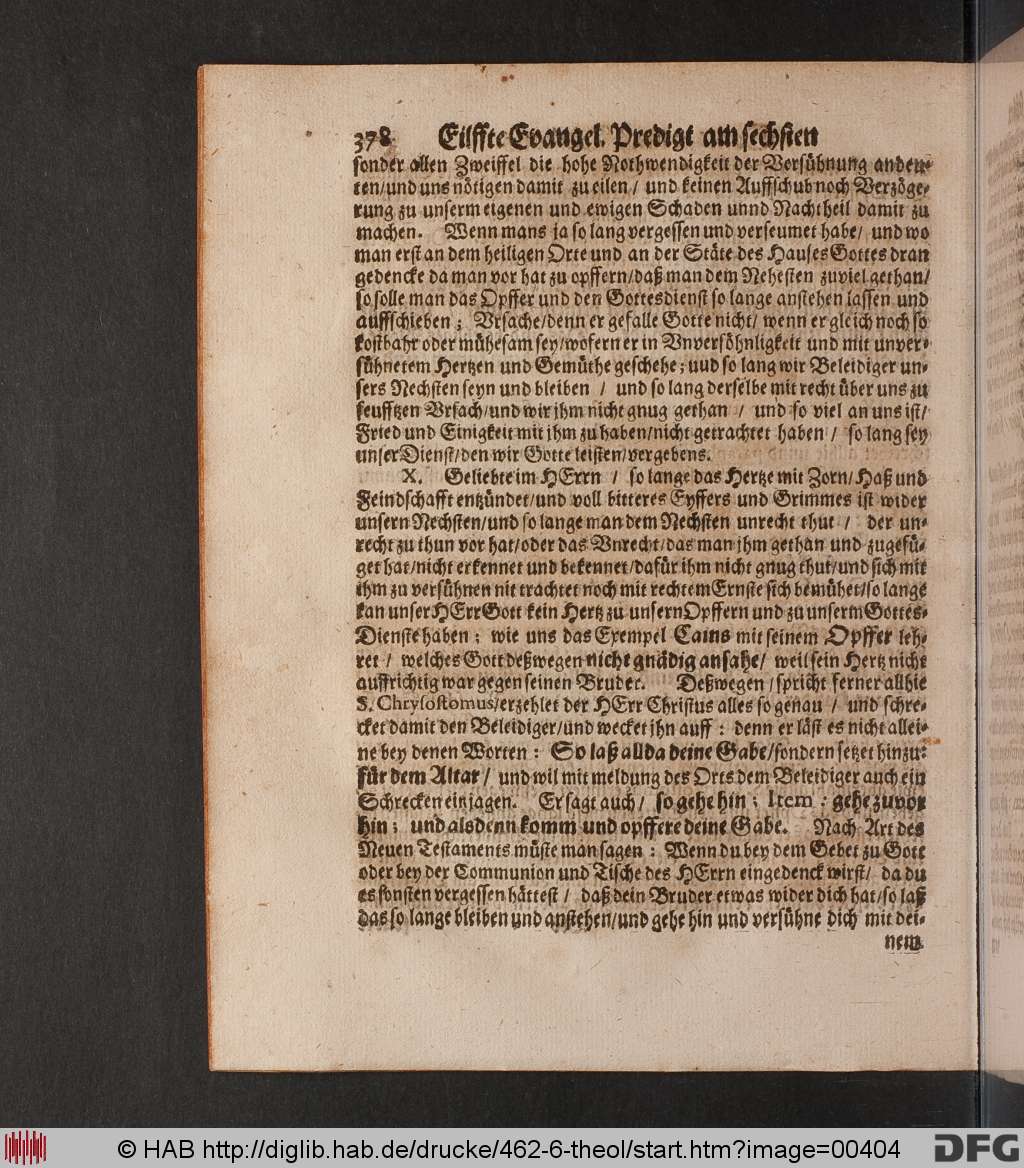 378 Eilffte Evangel. Predigt am sechsten
sonder allen Zweiffel die hohe Nothwendigkeit der Versühnung andeu-
ten/und uns nötigen damit zu eilen/ und keinen Auffschub noch Verzöge-
rung zu unserm eigenen und ewigen Schaden unnd Nachtheil damit zu
machen. Wenn mans ja so lang vergessen und verseumet habe/ und wo
man erst an dem heiligen Orte und an der Stäte des Hauses Gottes dran
gedencke da man vor hat zu opffern/daß man dem Nehesten zuviel gethan/
so solle man das Opffer und den Gottesdienst so lange anstehen lassen und
auffschieben; Vrsache/denn er gefalle Gotte nicht/ wenn er gleich noch so
kostbahr oder mühesam sey/wofern er in Vnversöhnligkeit und mit unver-
sühnetem Hertzen und Gemüthe geschehe; uud so lang wir Beleidiger un-
sers Nechsten seyn und bleiben / und so lang derselbe mit recht über uns zu
seufftzen Vrsach/und wir jhm nicht gnug gethan / und so viel an uns ist/
Fried und Einigkeit mit jhm zu haben/nicht getrachtet haben / so lang sey
unser Dienst/den wir Gotte leisten/vergebens.
X. Geliebte im HErrn / so lange das Hertze mit Zorn/Haß und
Feindschafft entzündet/und voll bitteres Eyffers und Grimmes ist wider
unsern Nechsten/und so lange man dem Nechsten unrecht thut / der un-
recht zu thun vor hat/oder das Vnrecht/das man jhm gethan und zugefü-
get hat/nicht erkennet und bekennet/dafür ihm nicht gnug thut/und sich mit
ihm zu versühnen nit trachtet noch mit rechtem Ernste sich bemühet/so lange
kan unser HErr Gott kein Hertz zu unsern Opffern und zu unserm Gottes-
Dienste haben; wie uns das Exempel Cains mit seinem Opffer leh-
ret / welches Gott deßwegen nicht gnädig ansahe/ weil sein Hertz nicht
auffrichtig war gegen seinen Bruder. Deßwegen/spricht ferner allhie
S. Chrysostomus/erzehlet der HErr Christus alles so genau / und schre-
cket damit den Beleidiger/und wecket jhn auff: denn er läst es nicht allei-
ne bey denen Worten: So laß allda deine Gabe/sondern setzet hinzu:
für dem Altar/ und wil mit meldung des Orts dem Beleidiger auch ein
Schrecken einjagen. Er sagt auch/ so gehe hin; Item: gehe zuvor
hin; und alsdenn komm und opffere deine Gabe. Nach Art des
Neuen Testaments müste man sagen: Wenn du bey dem Gebet zu Gott
oder bey der Communion und Tische des HErrn eingedenck wirst/ da du
es sonsten vergessen hättest/ daß dein Bruder etwas wider dich hat/so laß
das so lange bleiben und anstehen/und gehe hin und versühne dich mit dei-
nem
© HAB http://diglib.hab.de/drucke/462-6-theol/start.htm?image=00404
DFG